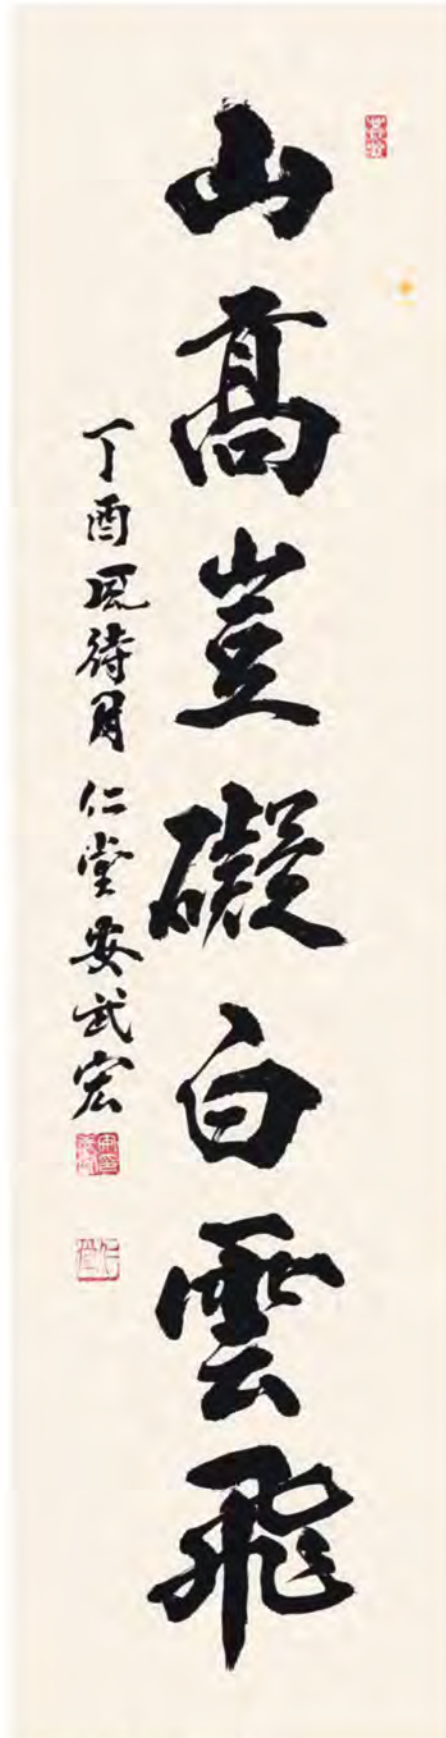 山高豈礙白雲飛
丁酉風待月 仁堂 安武宏